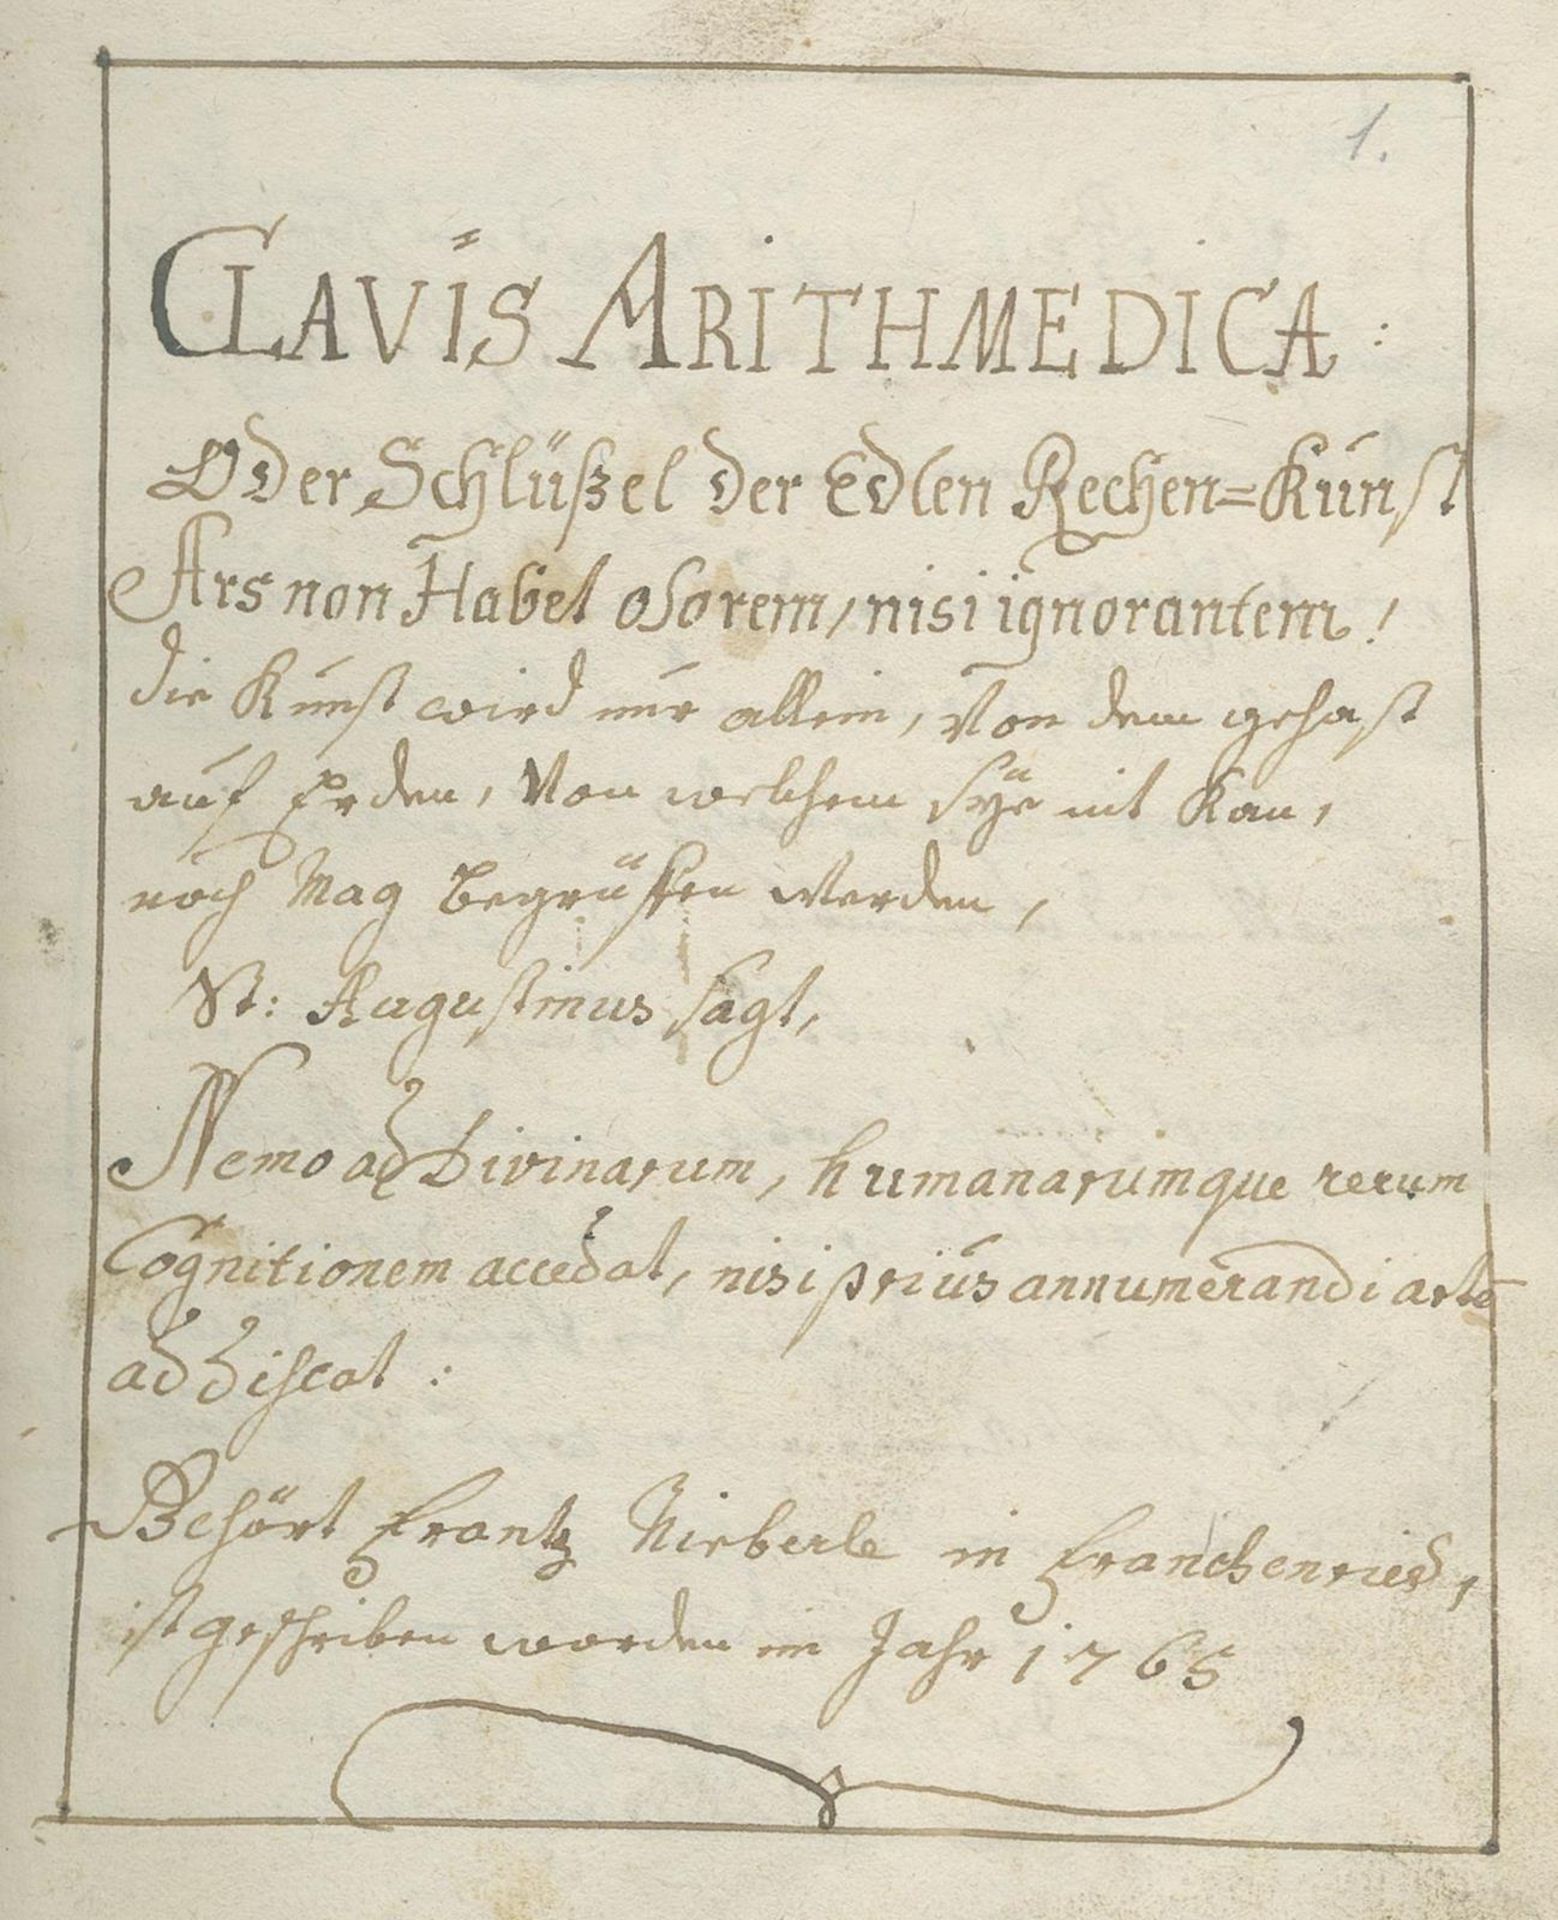 1.
CLAVIS ARITHMEDICA:
Oder Schlüßel der Edlen Rechen=Kunst
Ars non Habet osorem, nisi ignorantem!
die Kunst wird nur allein, Von dem gehast
auf Erden, Von welchem sÿe nit Kan,
noch Mag begrüssen Werden,
St: Augustinus sagt,
Nemo ad Divinarum, humanarumque rerum
Cognitionem accedat, nisi prius annumerandi artē
addiscat:
Gehört Frantz Nieberle in Franchenried,
ist geschriben worden im Jahr 1765